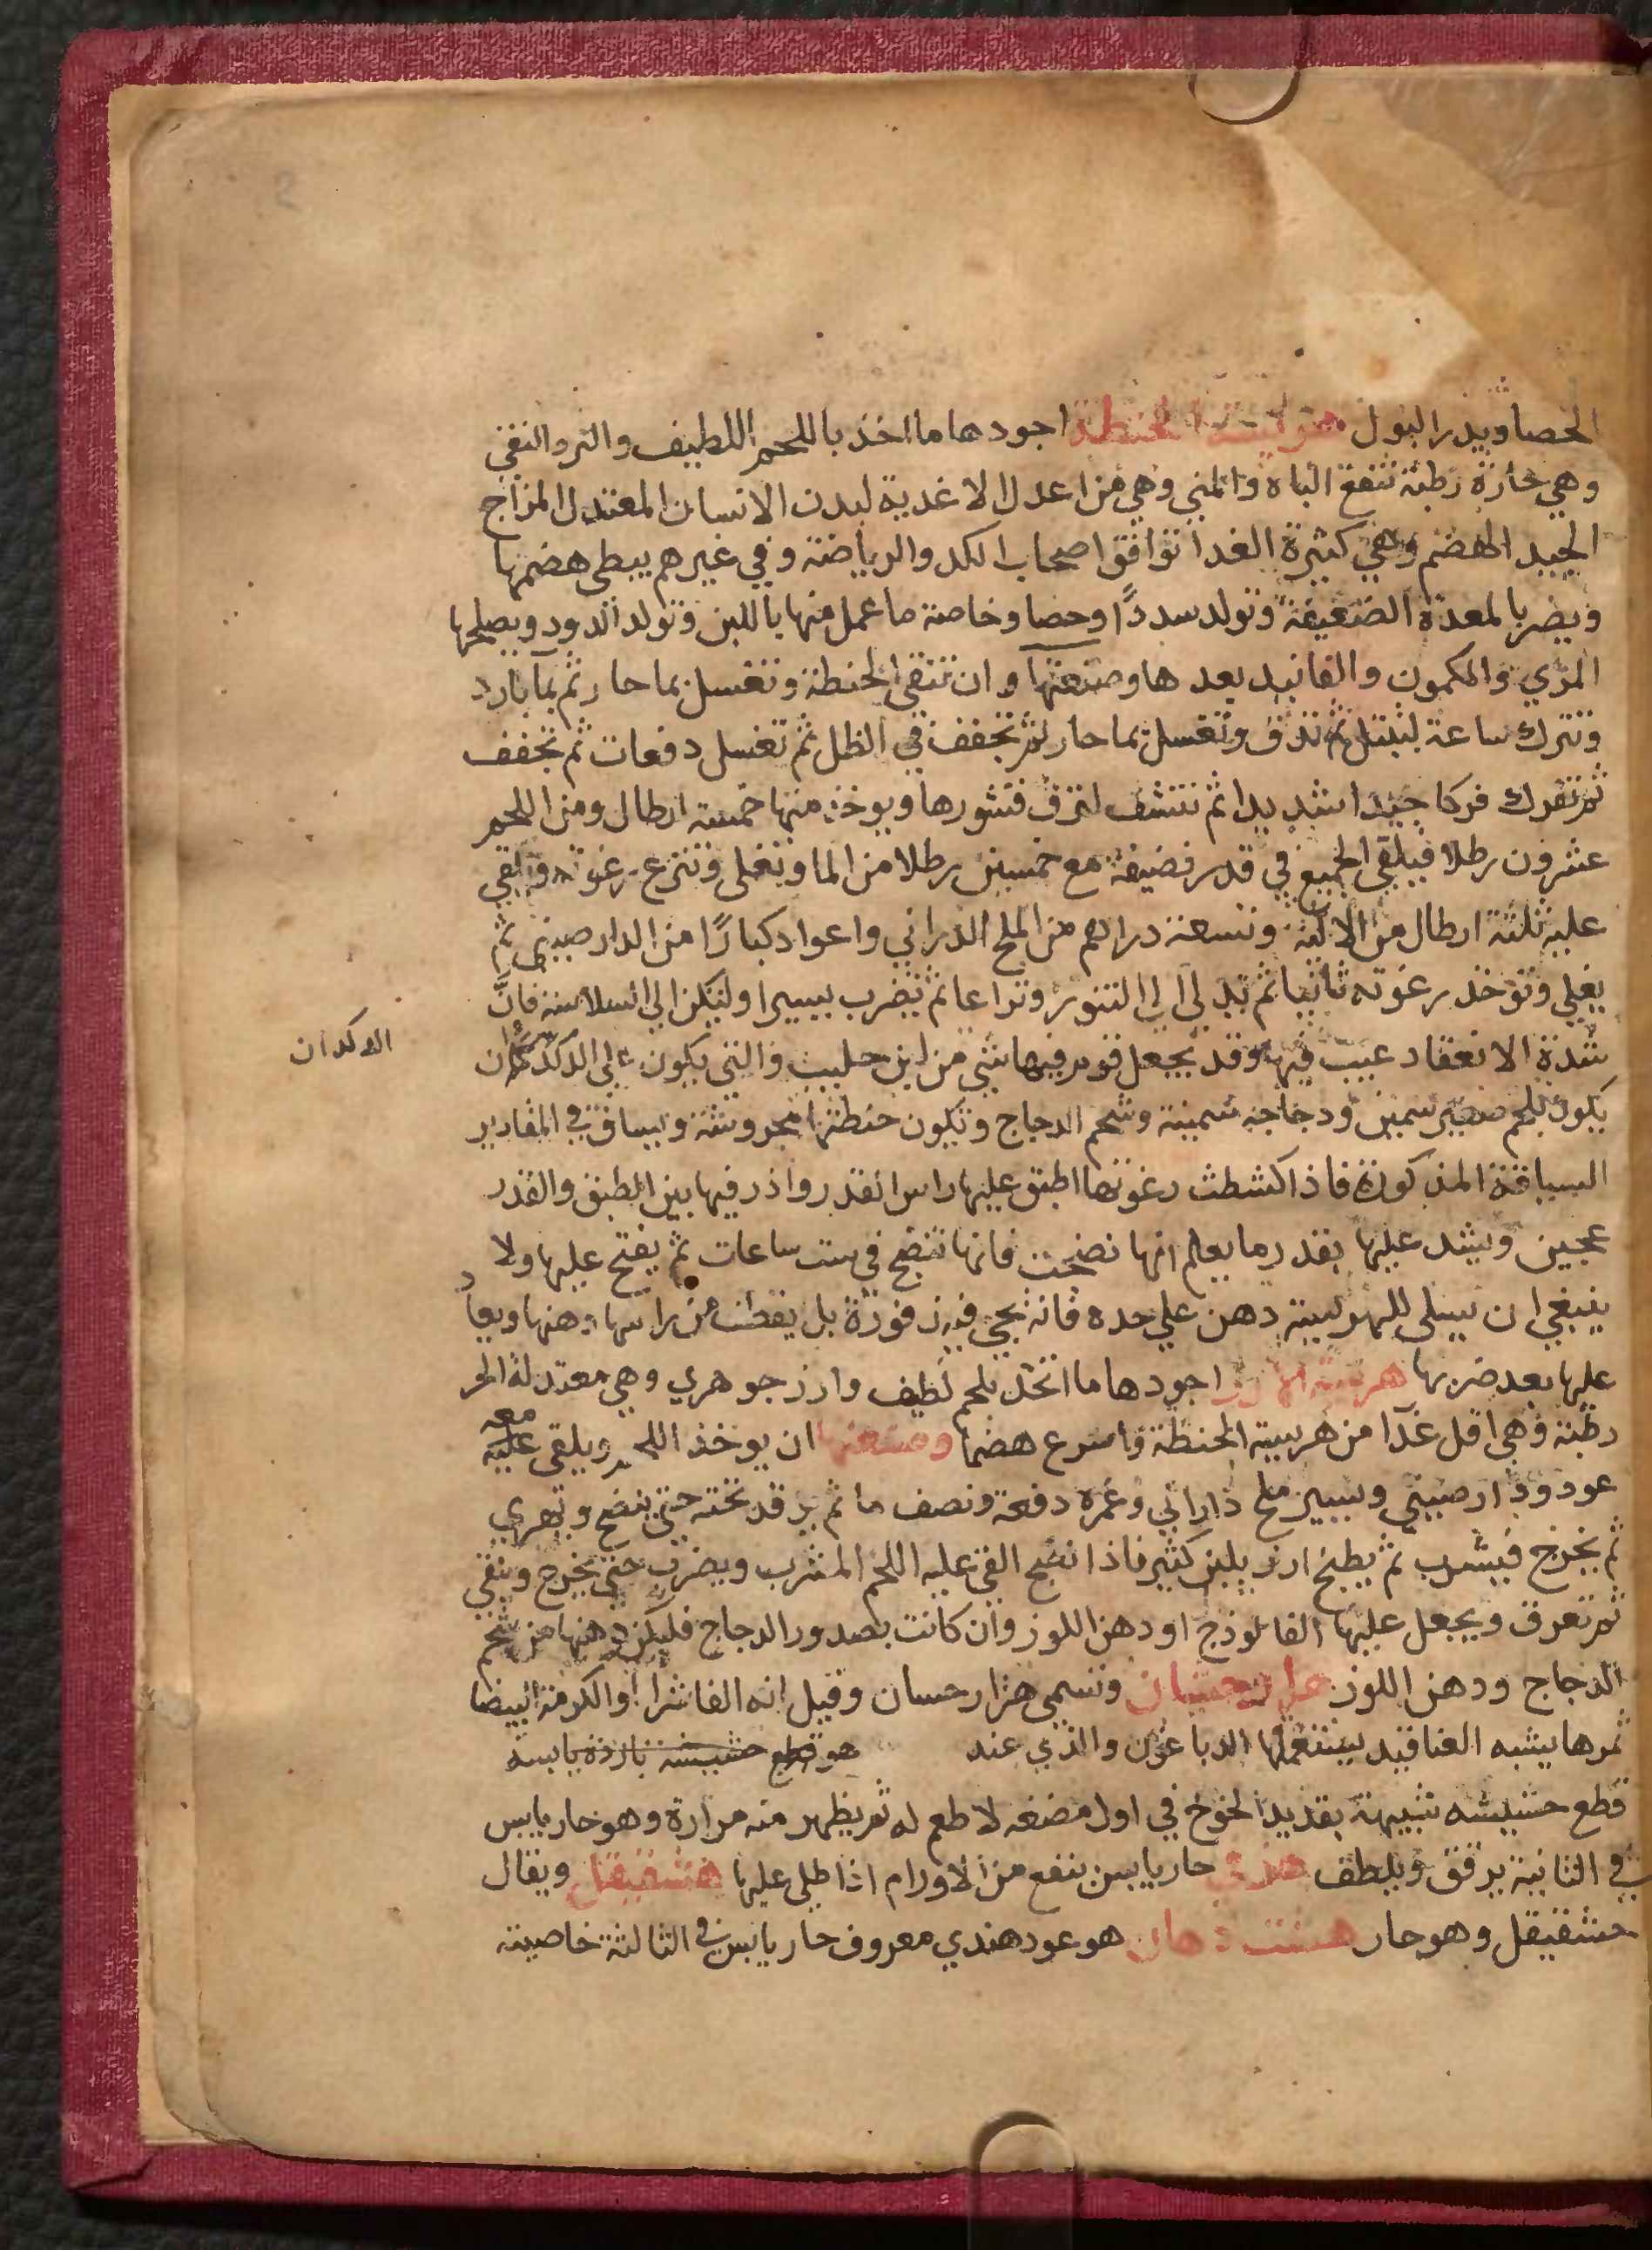 الحصا ويدر البول هريسة الحنطة اجودها ما اخذ باللحم اللطيف والبر النقي
وهي حارة رطبة تنفع الباه والمني وهي من اعدل الاغدية لبدن الانسان المعتدل المزاج
الجيد الهضم وهي كثيرة الغدا توافق اصحاب الكد والرياضة وفي غيرهم يبطي هضمها
ويضر بالمعدة الضعيفة وتولد سددًا وحصا وخاصة ما عمل منها باللبن وتولد الدود ويصلحها
المري والكمون والفانيد بعدها وصنعتها ان تنقي الحنطة وتغسل بما حار ثم بما بارد
وتترك ساعة لتبتل ثم تدق وتغسل بما حار ثم تجفف في الظل ثم تغسل دفعات ثم تجفف
ثم تفرك فركا جيدا شديدا ثم تنشف قشورها ويوخذ منها خمسة ارطال ومن اللحم
عشرون رطلا فيلقي الجميع في قدر نضيفة مع خمسين رطلا من الما وتغلى وتنزع رغوته ويلقي
عليه ثلثة ارطال من الالية وتسعة دراهم من الملح الدراني واعواد كبارًا من الدارصيني ثم
يغلي وتوخذ رغوته ثانيا ثم تدلي الي التنور وتراعا ثم تضرب يسيرا ولتكن الي السلاسة فانَّ
شدة الانعقاد عيب فيها وقد يجعل قوم فيها شي من لبن حليب والتي يكون علي الدكدان
الدكدان
يكون بلحم سمين ودجاجه سمينة وشحم الدجاج وتكون حنطتها مجروشة ويساق في المقادير
السياقة المذكورة فاذا كشطت رغوتها اطبق عليها راس القدر واذر فيها بين الطبق والقدر
عجين ويشد عليها بقدر ما يعلم انها نضجت فانها تنضج في ست ساعات ثم يفتح عليها ولا
ينبغي ان يسلى للهريسة دهن علي حده فانه يجي فيه زفورة بل يقطف من راسها دهنها ويعاد
عليها بعد ضربها هريسة الارز اجودها ما اتخذ بلحم لطيف وارز جوهري وهي معتدلة الحر
رطبة وهي اقل غدآ من هريسة الحنطة واسرع هضما وصنعتها ان يوخذ اللحم ويلقى عليه معه
عود دارصيني ويسير ملح داراني وغمره دفعة ونصف ما ثم يوقد تحته حتي ينضج ويهري
ثم يخرج فيشرب ثم يطبخ ارز بلبن كثير فاذا نضج القي عليه اللحم المشرب ويضرب حتي يخرج وينقي
ثم تعرق ويجعل عليها الفالوذج او دهن اللوز وان كانت بصدور الدجاج فليكن دهنها من شحم
الدجاج ودهن اللوز هزارجشان وتسمى هزارحسان وقيل انه الفاشرا او الكرمة البيضا
ثمرها يشبه العناقيد يستعملها الدباغون والذي عند هو قطع خشبيته باردة يابسه
قطع خشبيشه شبيهة بقديد الخوخ في اول مضغه لا طعم له ثم يظهر منه مرارة وهو حار يابس
في الثانية يرقق ويلطف حار يابس ينفع من الاورام اذا طلي عليها هشفيقل ويقال
حشفيقل وهو حار هشت دهان هو عود هندي معروف حار يابس في الثالثة خاصيته